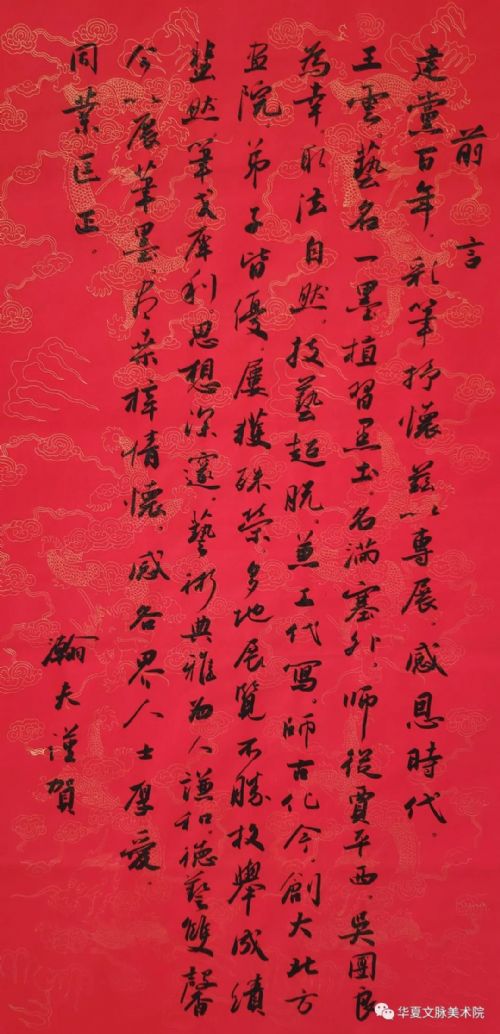 前言
建黨百年，彩筆抒懷，茲以專展，感恩時代。
王雲，藝名一墨，植習黑土，名滿塞外，師從賈平西，吳團良
為幸，取法自然，技藝超脱，兼工代寫，師古化今，創大北方
畫院，弟子皆優，屢獲殊榮，多地展覽不勝枚舉，成績
斐然，筆文犀利，思想深邃，藝術典雅，為人謙和，德藝雙馨
今以展筆墨，存桑梓情懷，感各界人士厚愛，
同業匡正。
瀚夫謹賀
华夏文脉美术院